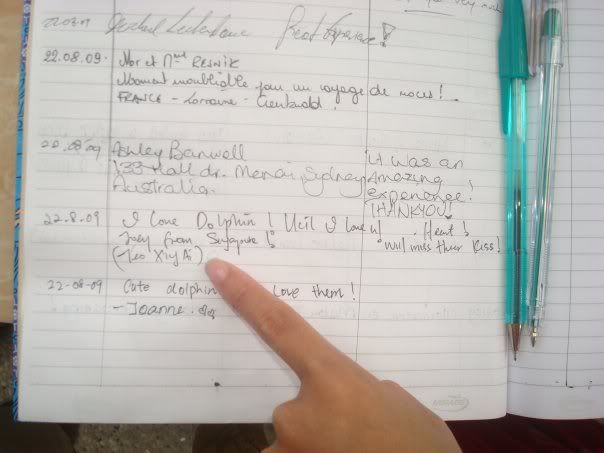 Great Experience!
22.08.09. Mor et Mme RESNIK
Moment inoubliable pour un voyage de noces!
FRANCE - Lorraine -
22.08.09 Ashley Banwell
133 Hall dr. Menai, Sydney
Australia.
It was an
Amazing
experience!
THANKYOU!
22.8.09 I love Dolphin! I love u! Heart!
Joey from Singapore!
Will miss their kiss!
(Teo Xiu Ai)
22-08-09 Cute dolphin love them!
- Joanne.
MIRAGE